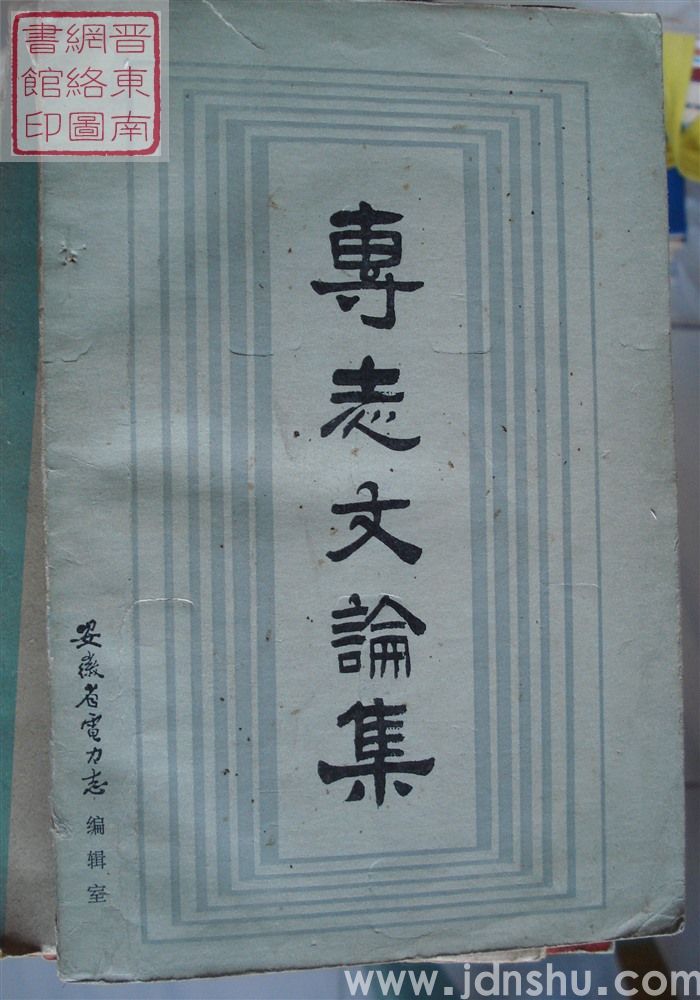 晋東南
網絡圖
書館印
專志文論集
安徽省電力志编辑室
www.jdnshu.com